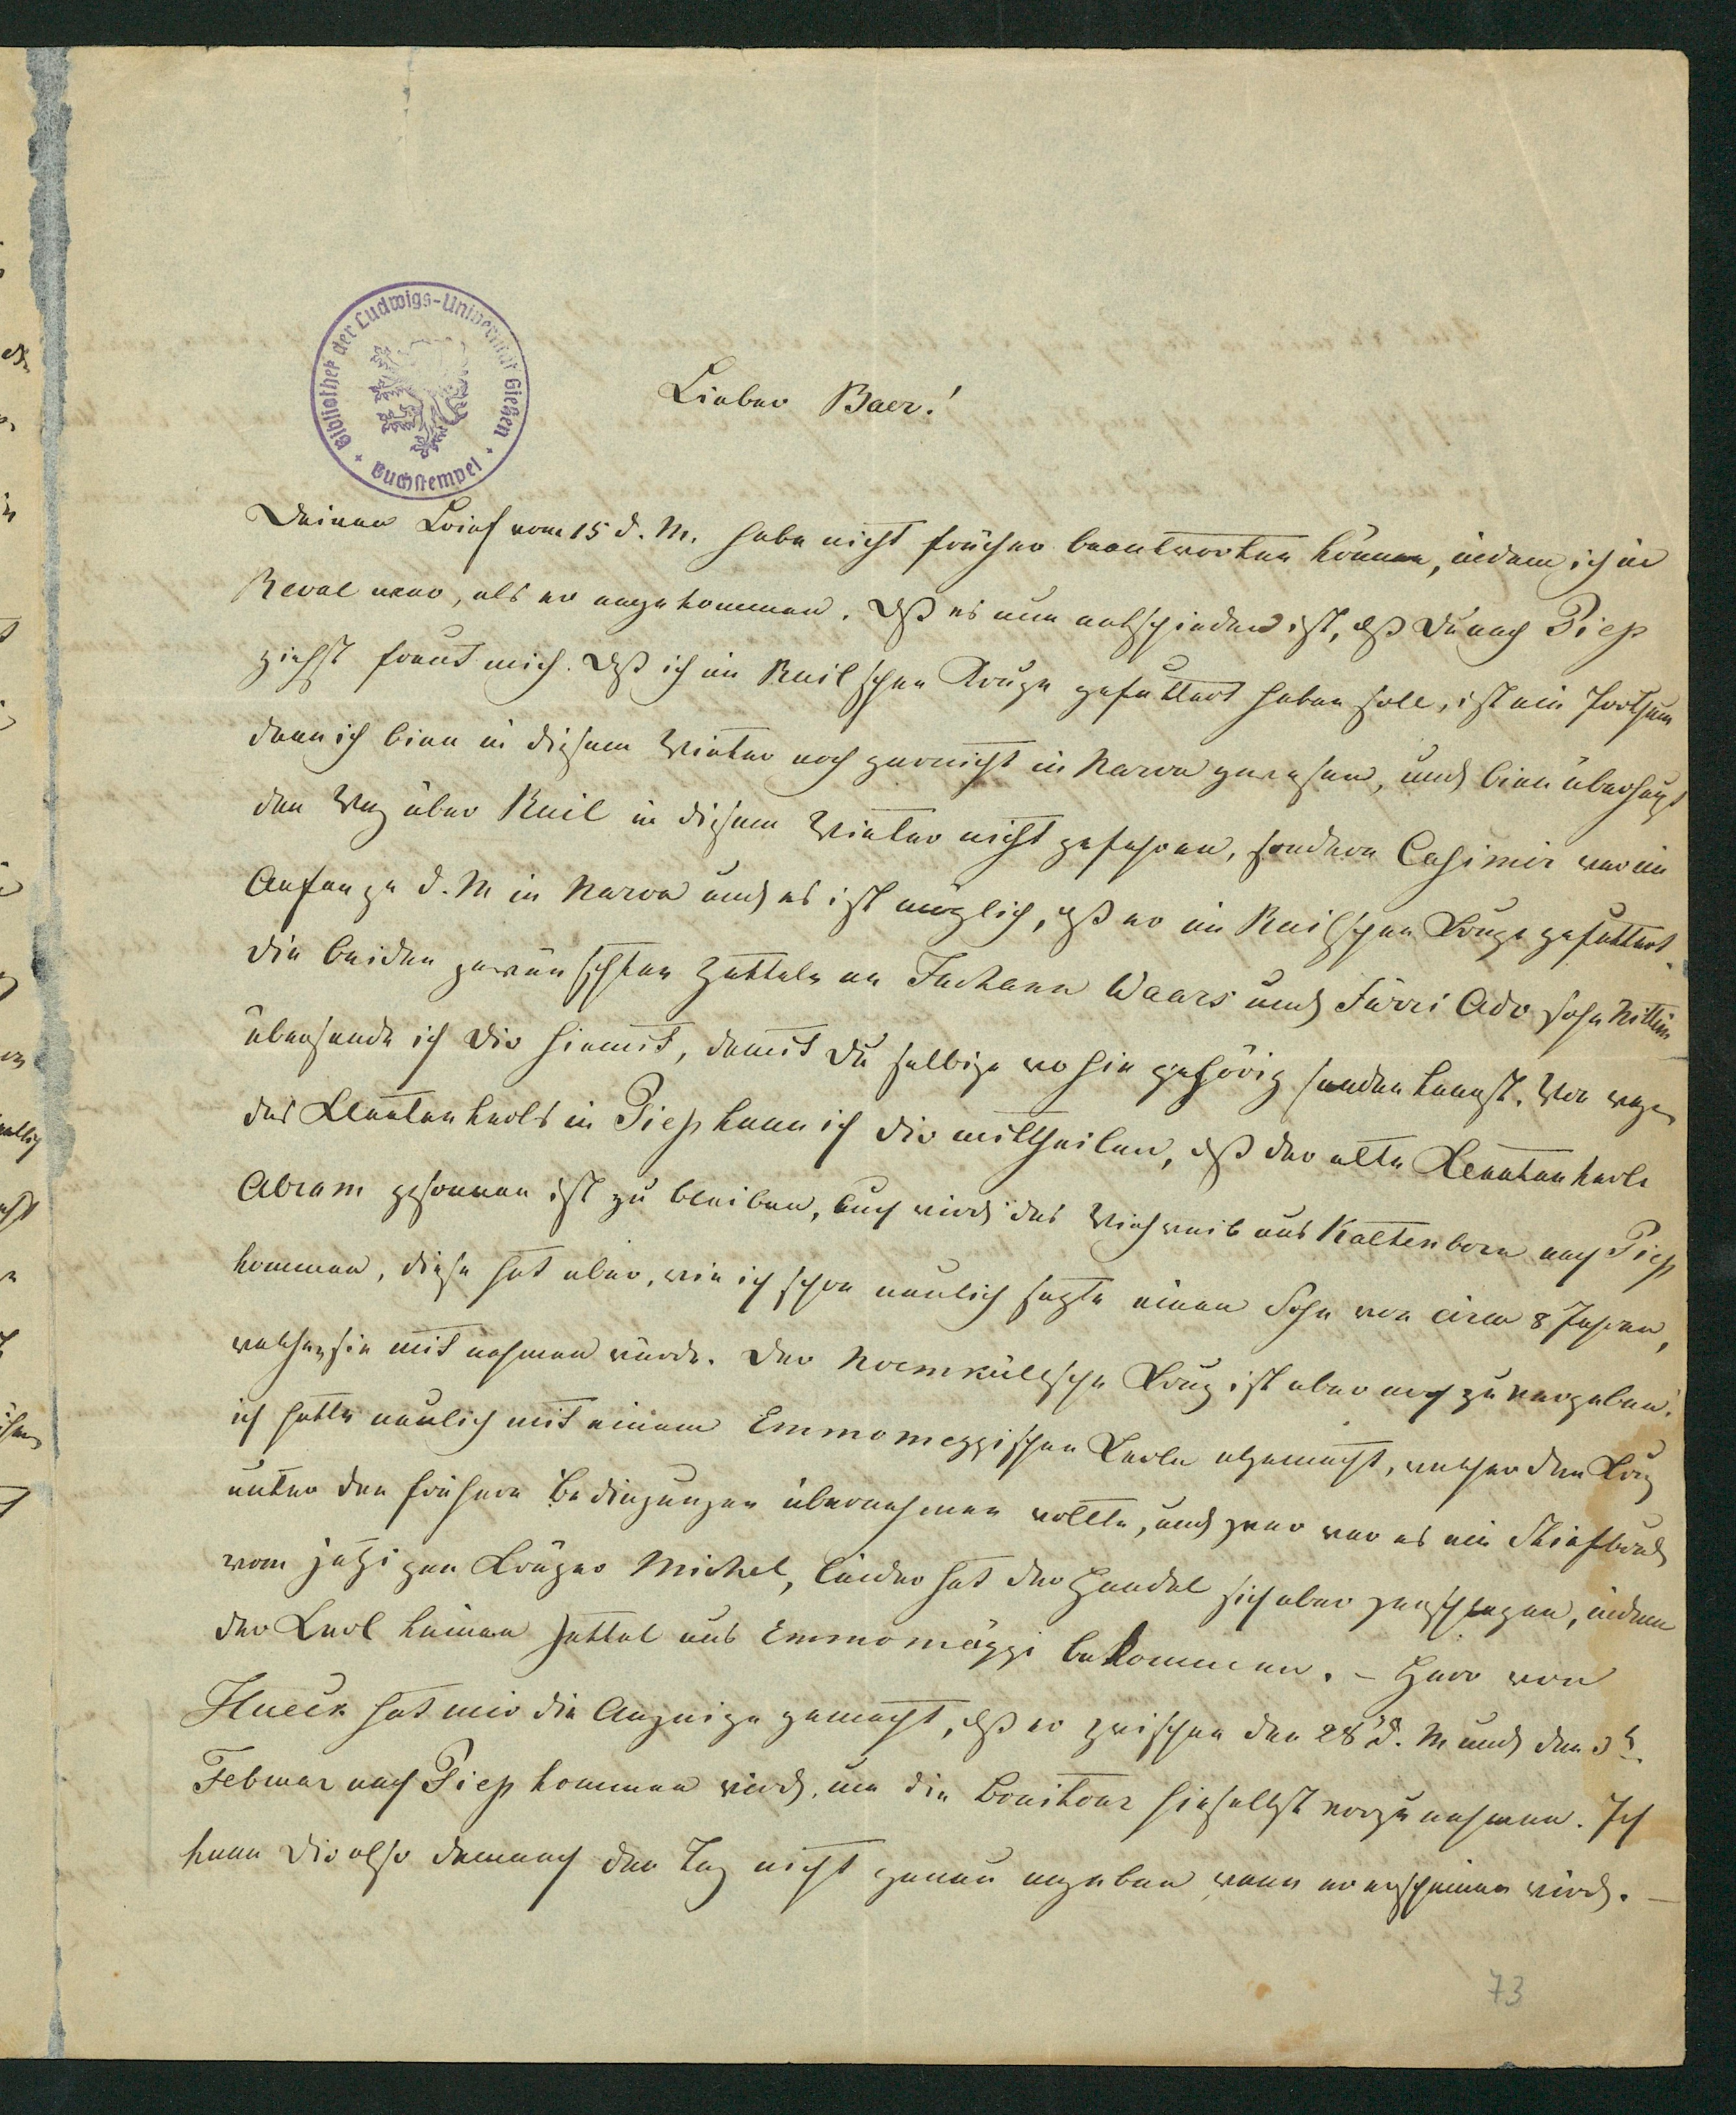 Bibliothek der Ludwigs-Universität Gießen
Buchstempel
Lieber Baer!
Deinen Brief vom 15 d. M. habe nicht früher beantworten können, indem ich in
Reval war, als er angekommen. Daß es nun entschieden ist, daß Du nach Piep
ziehst freut mich. Daß ich im Ruil'schen Kruge gefuttert haben soll, ist ein Irrthum
denn ich binn in diesem Winter noch garnicht in Narva gewesen, und bin überhaupt
den Weg über Ruil in diesem Winter nicht gefahren, sondern Casimir war im
Anfange d. M in Narva und es ist möglich, daß er im Ruilschen Kruge gefuttert.
Die beiden gewünschten Zetteln an Juhann Waars und Jürri Ado Sohn
übersende ich Dir hiemit, damit Du selbige wo hin gehörig senden kannst. Von wegen
des Kleetenkerls in Piep kann ich dir mittheilen, daß der alte Kleetenkerl
Abram gesonnen ist zu bleiben, auch wird das Viehweib aus Kaltenborn nach Piep
kommen, diese hat aber, wie ich schon neulich sagte einen Sohn von circa 8 Jahren,
welchen sie mit nehmen würde. Der Noemküllsche Krug ist aber noch zu vergeben.
ich hatte neulich mit einem Emmomeggischen Kerln abgemacht, welcher den Krug
unter den frühern Bedingungen übernehmen wollte, und zwar war es ein Stiefbrud
vom jetzigen Krüger Michel, leider hat der Handel sich aber zerschlagen, indem
der Kerl keinen Zettel aus Emmomäggi bekommen. – Herr von
Hueck hat mir die Anzeige gemacht, daß er zwischen den 28 d. M und den 3t.
Februar nach Piep kommen wird, um die Bonitour hieselbst vorzunehmen. Ich
kann Dir also demnach den Tag nicht genau angeben wann er erscheinen wird. –
73